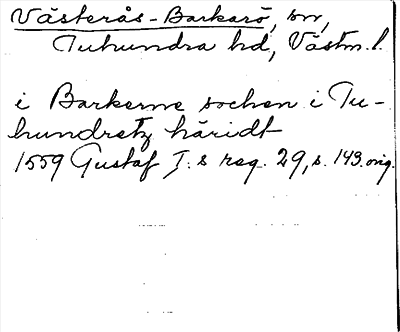 Västerås-Barkarö, sn,
Tuhundra hd, Västm. l.
i Barkerne sochen i Tu-
hundretz häridt
1559 Gustaf I:s reg. 29, s. 143. orig.